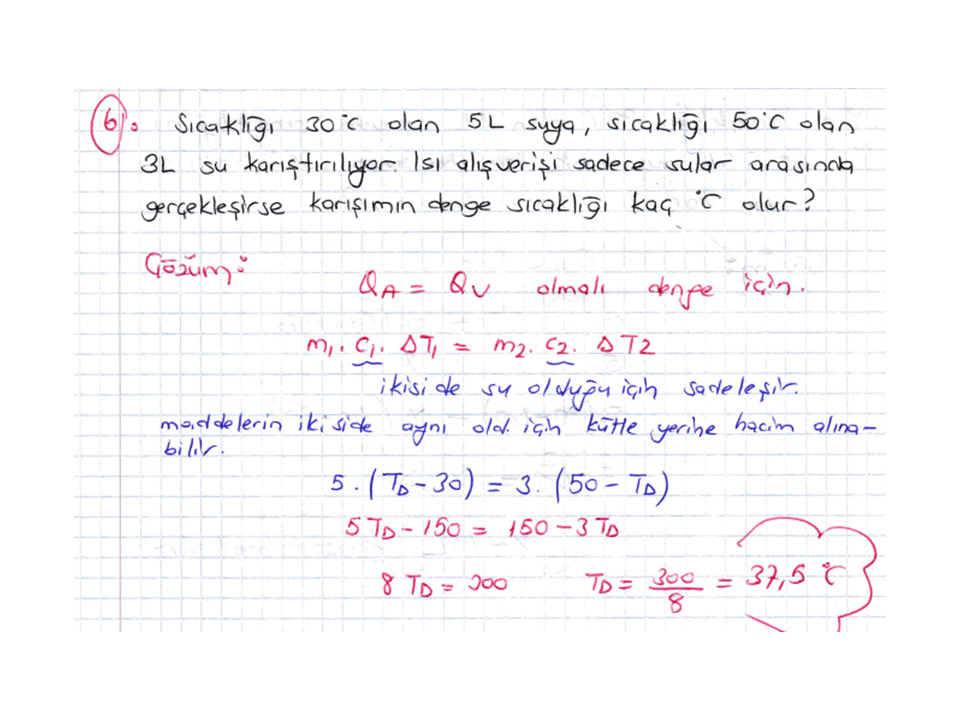 6. Sıcaklığı 30°C olan 5L suya, sıcaklığı 50°C olan
3L su karıştırılıyor. Isı alışverişi sadece sular arasında
gerçekleşirse karışımın denge sıcaklığı kaç °C olur?
Çözüm:
QA = QV olmalı denge için.
m1. c1. ΔT1 = m2. c2. ΔT2
ikiside su olduğu için sadeleşir.
maddelerin ikiside aynı old. için kütle yerine hacim alına-
bilir.
5. (TD - 30) = 3. (50 - TD)
5TD - 150 = 150 - 3TD
8 TD = 300 TD = 300/8 = 37,5 °C